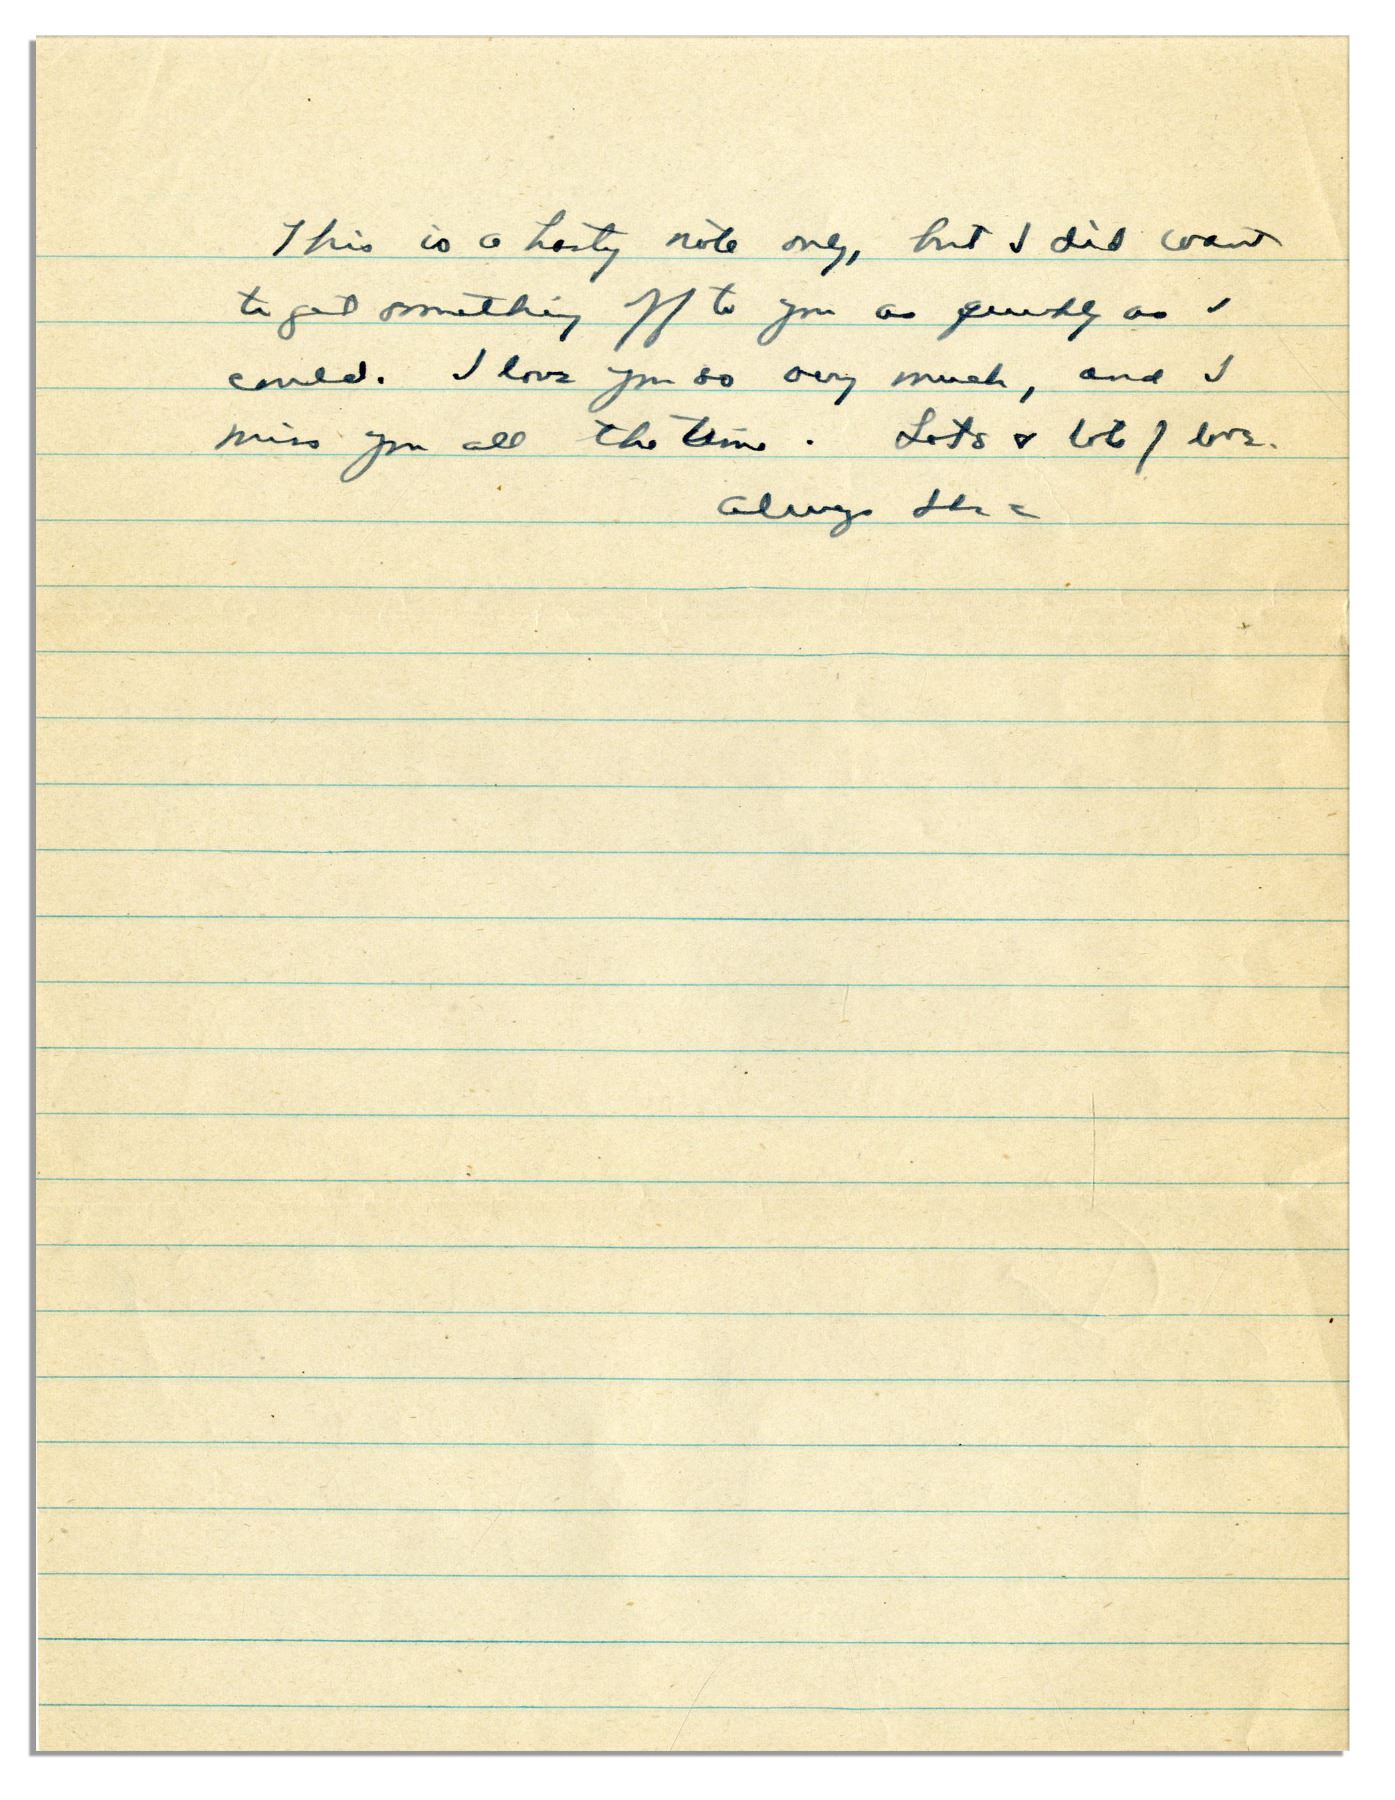 This is a hasty note only, but I did want
to get something off to you as quickly as I
could. I love you so very much, and I
miss you all the time. Lots & lots of love.
Always